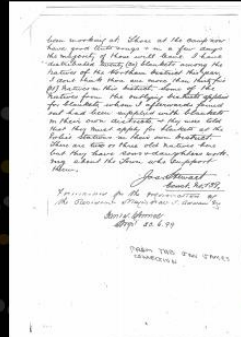 been working at. Those at the camp now
have good little mogs & in a few days
the majority of them will leave. I have
distributed twenty (20) blankets among the
Natives of the Northam District this year.
I don't think there are more than thirty five
(35) Natives in this District. Some of the
Natives from the outlying Districts applied
for blankets whom I afterwards found
out had been supplied with blankets
in their own districts & they were told
that they must apply for blankets at the
Police Stations in their own District.
There are two or three old Natives here
but they have sons & daughters work
ing about the Town who support
them.
Jas. Stewart
Const. No 739
Forwarded for the information of
the Resident Magistrate
Sergt 23.6.99
FROM THE JAN JAMES
COLLECTION